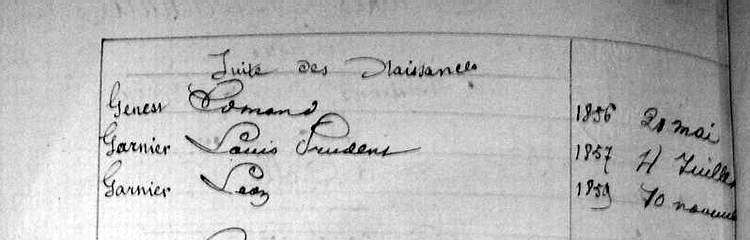 Suite des Naissances
Genest Edmond 1856 21 mai
Garnier Louis Prudent 1857 4 Juillet
Garnier Léon 1859 10 novem